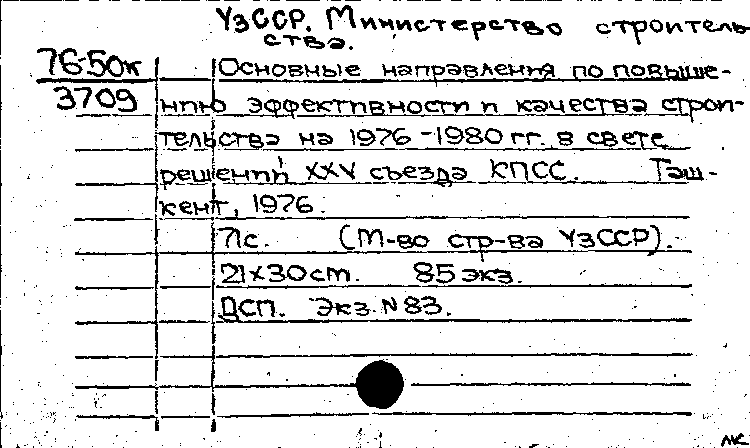 УзССР. Министерство строитель-
ства.
76-50к Основные направления по повыше-
3709 нию эффективности и качества строи-
тельства на 1976-1980 гг. в свете
решений XXV съезда КПСС. Таш-
кент, 1976.
71с. (М-во стр-ва УзССР).
21×30 cm. 85 экз.
ДСП. Экз. N 83.
МК